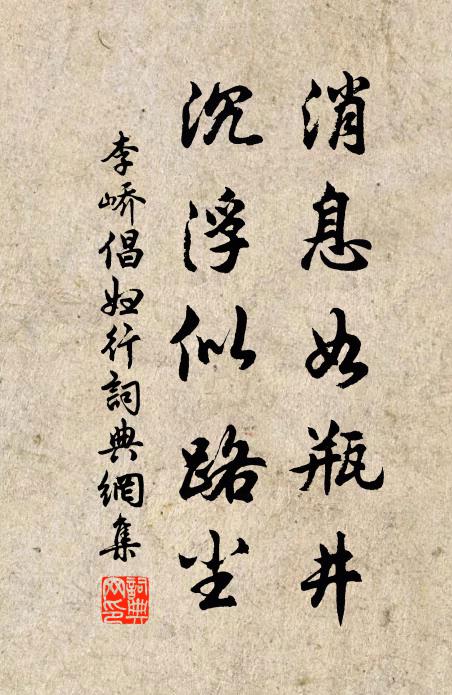 消息如瓶井
沉浮似路尘
李峤倡妇行詞典網集
詞典网印